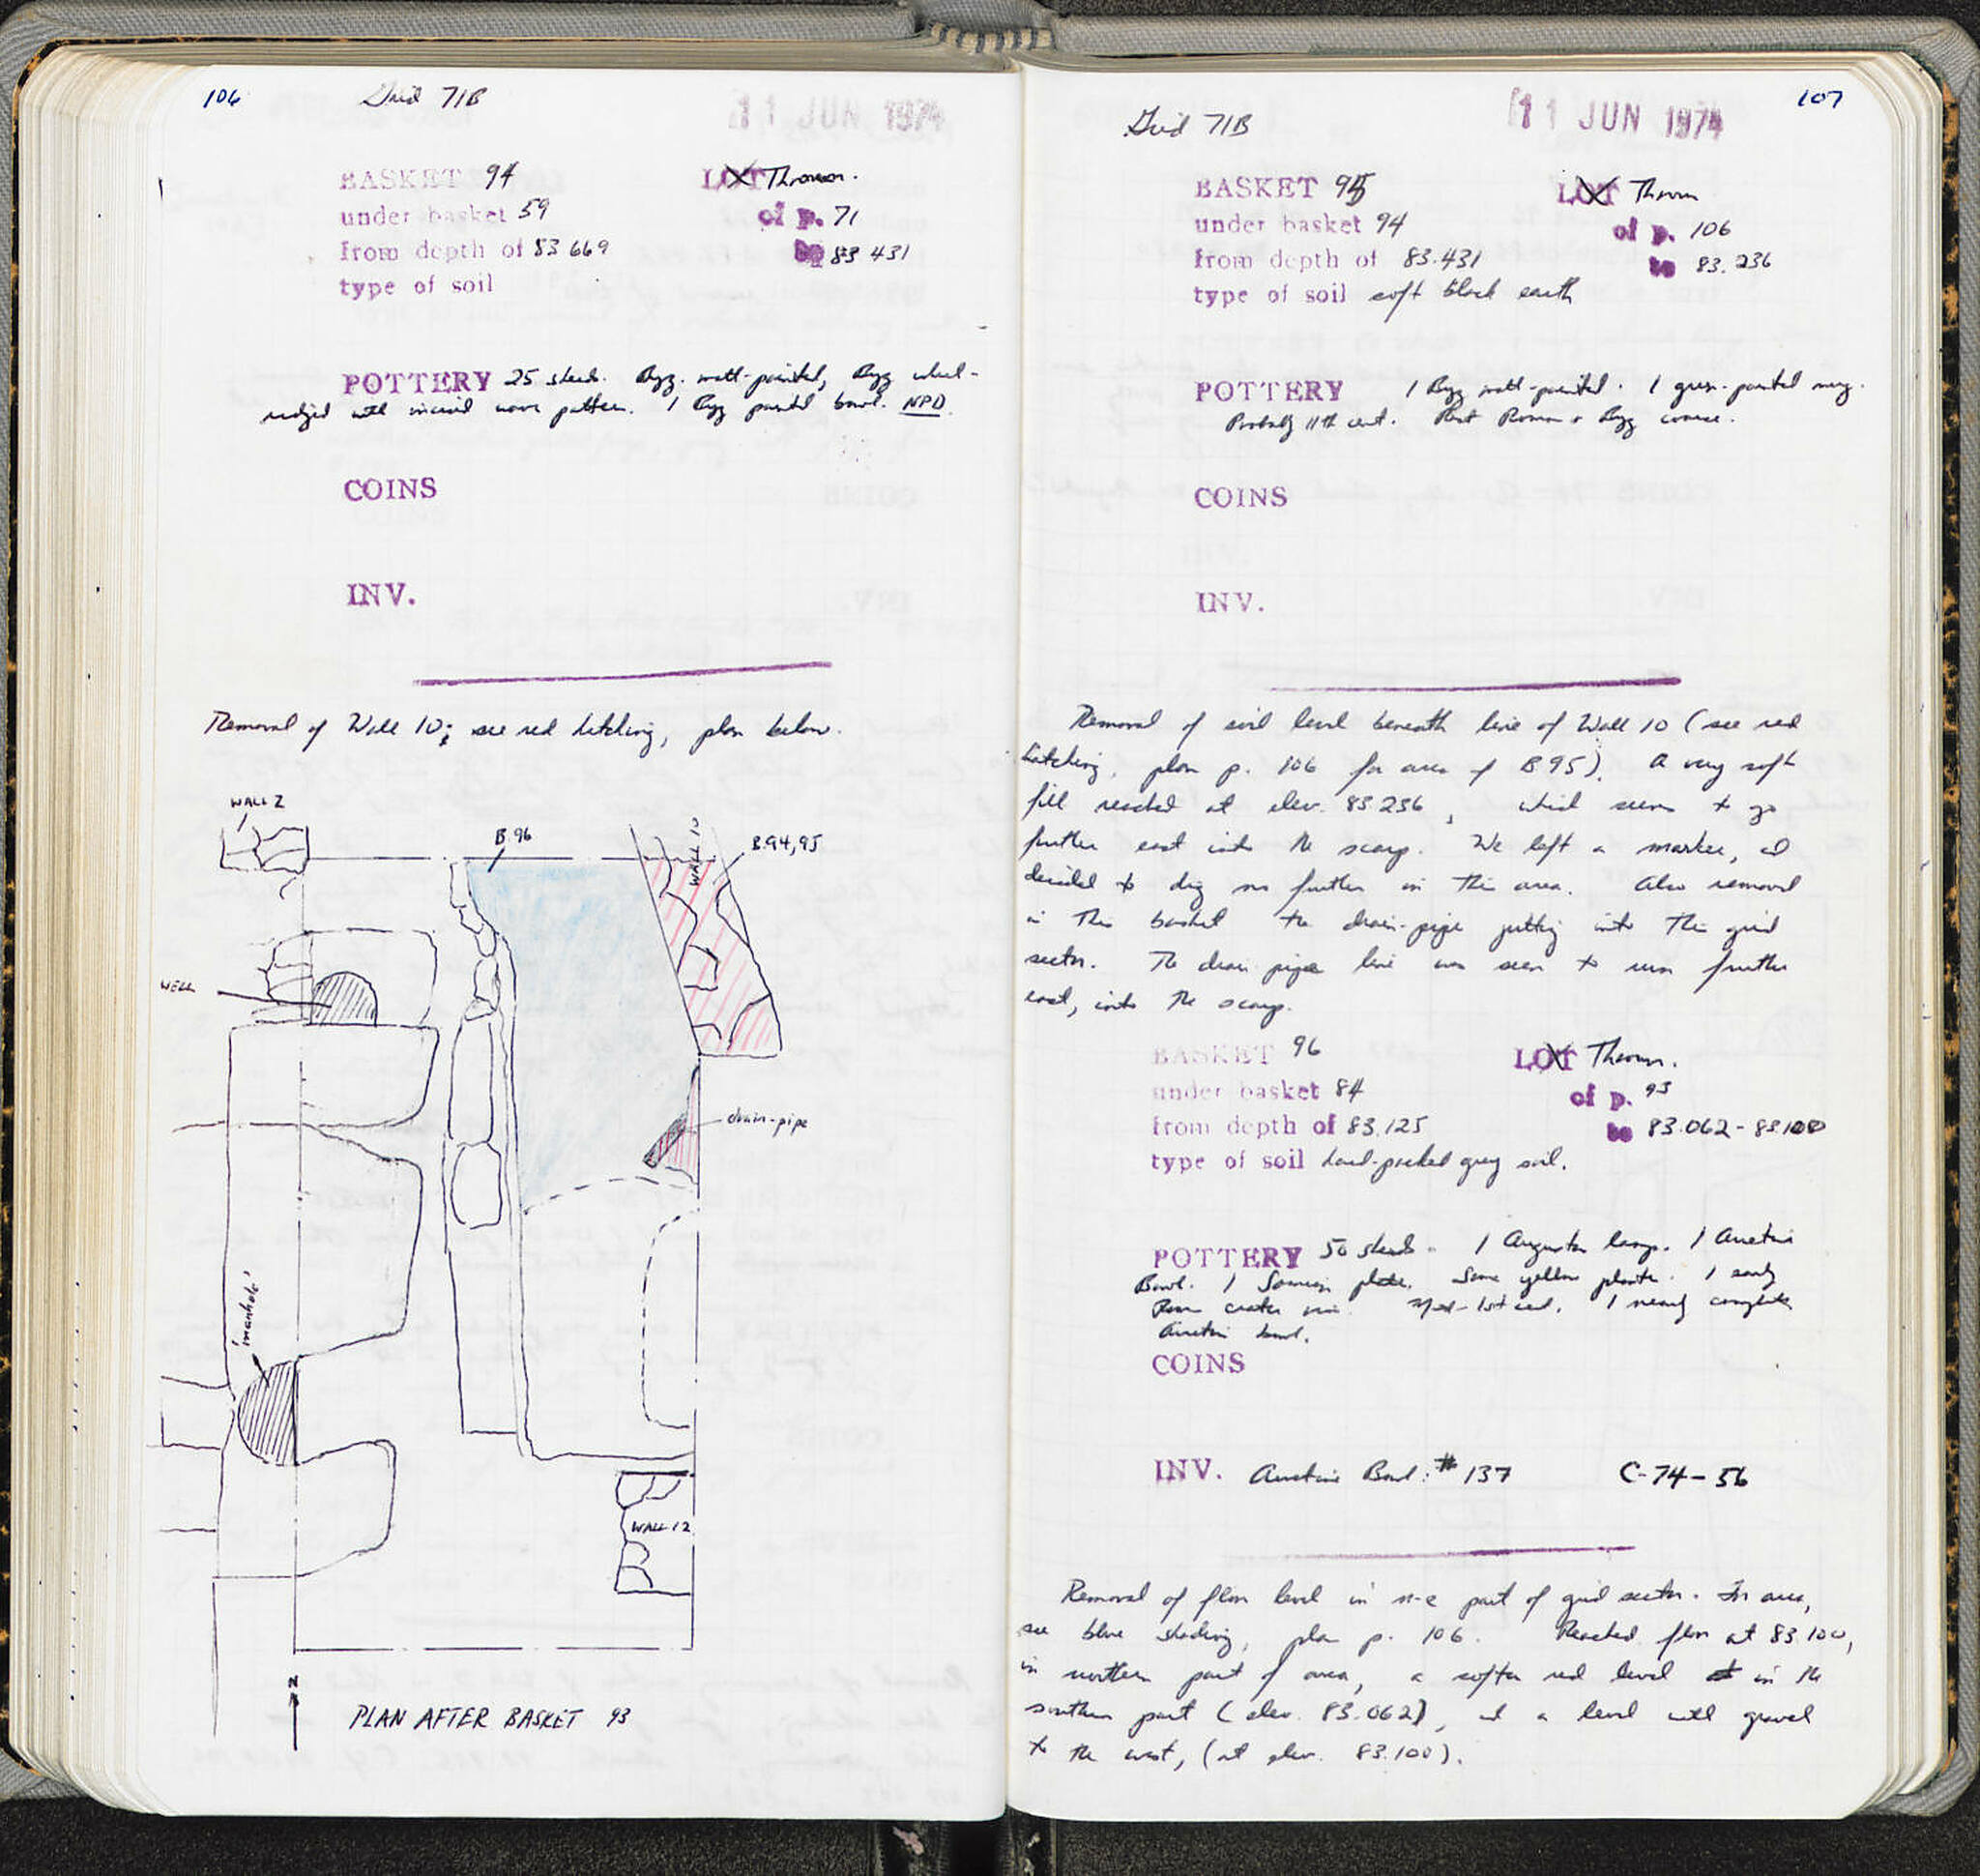 106
Grid 71B
11 JUN 1974
BASKET 94
LOT Thrown.
under basket 59
of p. 71
from depth of 83 669
to 83 431
type of soil
POTTERY 25 sherds. Byz. matt-painted, Byz wheel-
ridged with incised wave pattern. 1 Byz painted bowl. NPD.
COINS
INV.
Removal of Wall 10; see red hatching, plan below.
WALL 2
B.96
WALL 10
B.94,95
WELL
drain-pipe
'manhole'
WALL 12
N
PLAN AFTER BASKET 93
107
Grid 71B
11 JUN 1974
BASKET 95
LOT Thrown
under basket 94
of p. 106
from depth of 83.431
to 83.236
type of soil soft black earth
POTTERY 1 Byz matt-painted. 1 green-painted mug.
Probably 11th cent. Rest Roman + Byz coarse.
COINS
INV.
Removal of soil level beneath line of Wall 10 (see red
hatching, plan p. 106 for area of B95). A very soft
fill reached at elev. 83.236, which seems to go
further east into the scarp. We left a marker, and
decided to dig no further in this area. Also removed
in this basket the drain-pipe jutting into this grid
sector. The drain pipe line was seen to run further
east, into the scarp.
BASKET 96
LOT Thrown.
under basket 84
of p. 93
from depth of 83.125
to 83.062-83.100
type of soil hard-packed grey soil.
POTTERY 50 sherds. 1 Augustan lamp. 1 Arretine
Bowl. 1 Samian plate. Some yellow plaster. 1 early
Rom crater rim. Mid-1st cent. 1 nearly complete
Arretine bowl.
COINS
INV. Arretine Bowl: #137 C-74-56
Removal of floor level in n-e part of grid sector. For area,
see blue shading, plan p. 106. Reached floor at 83.100,
in northern part of area, a softer red level in the
southern part (elev. 83.062), and a level with gravel
to the west, (at elev. 83.100).